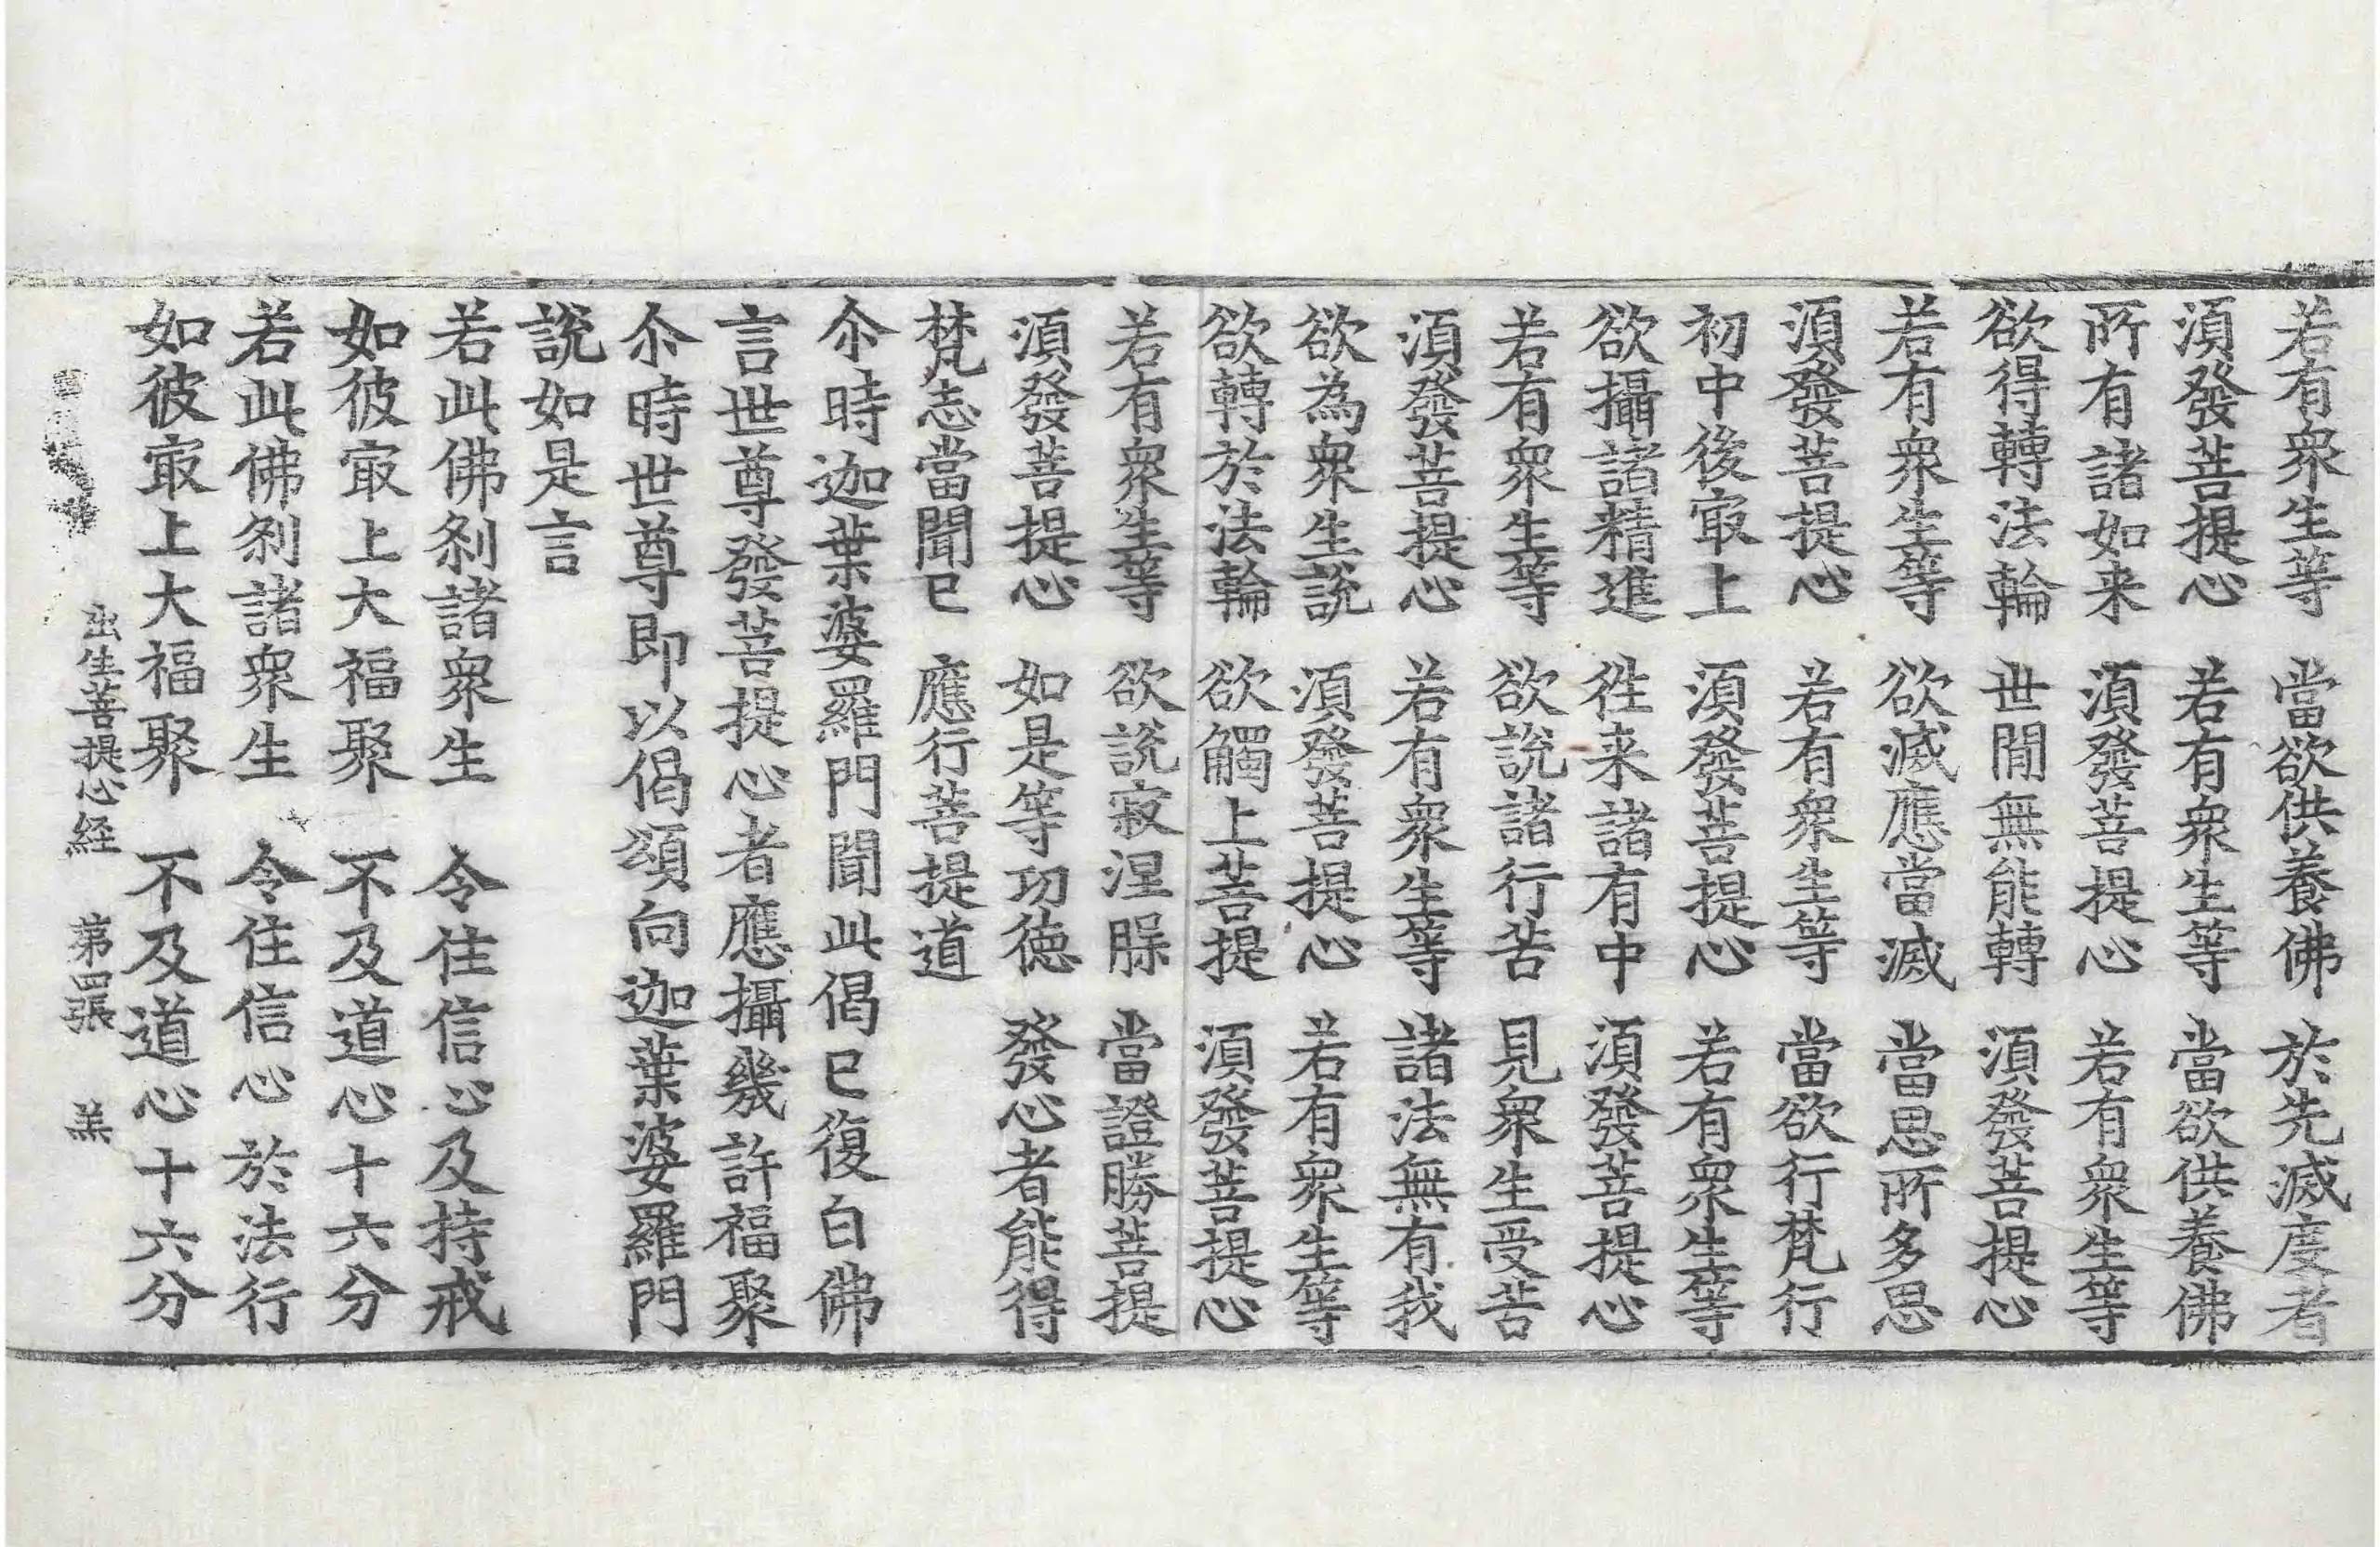 若有衆生等　當欲供養佛　於先滅度者
須發菩提心　若有衆生等　當欲供養佛
所有諸如来　須發菩提心　若有衆生等
欲得轉法輪　世間無能轉　須發菩提心
若有衆生等　欲滅應當滅　當思所多思
須發菩提心　若有衆生等　當欲行梵行
初中後冣上　須發菩提心　若有衆生等
欲攝諸精進　徃来諸有中　須發菩提心
若有衆生等　欲說諸行苦　見衆生受苦
須發菩提心　若有衆生等　諸法無有我
欲為衆生說　須發菩提心　若有衆生等
欲轉於法輪　欲觸上菩提　須發菩提心
若有衆生等　欲說寂涅㬽　當證勝菩提
須發菩提心　如是等功徳　發心者能得
梵志當聞已　應行菩提道
尒時迦葉婆羅門聞此偈已復白佛
言世尊發菩提心者應攝幾許福聚
尒時世尊即以偈頌向迦葉婆羅門
說如是言
若此佛刹諸衆生　令住信心及持戒
如彼冣上大福聚　不及道心十六分
若此佛刹諸衆生　令住信心於法行
如彼冣上大福聚　不及道心十六分
出生菩提心経　第四張　羔